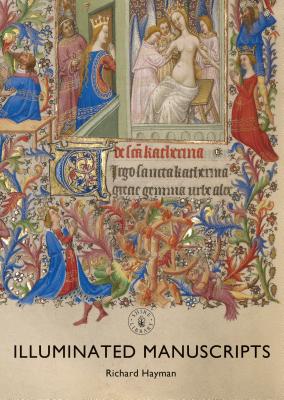 De sca katherina
Virgo sancta katherina
grecie gemma urbe alex
SHIRE LIBRARY
ILLUMINATED MANUSCRIPTS
Richard Hayman